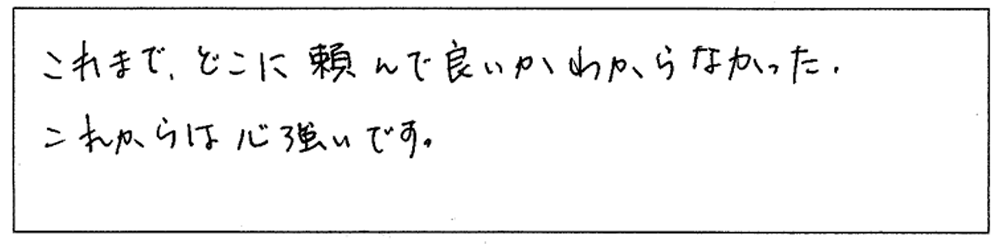 これまで、どこに頼んで良いかわからなかった.
これからは心強いです。